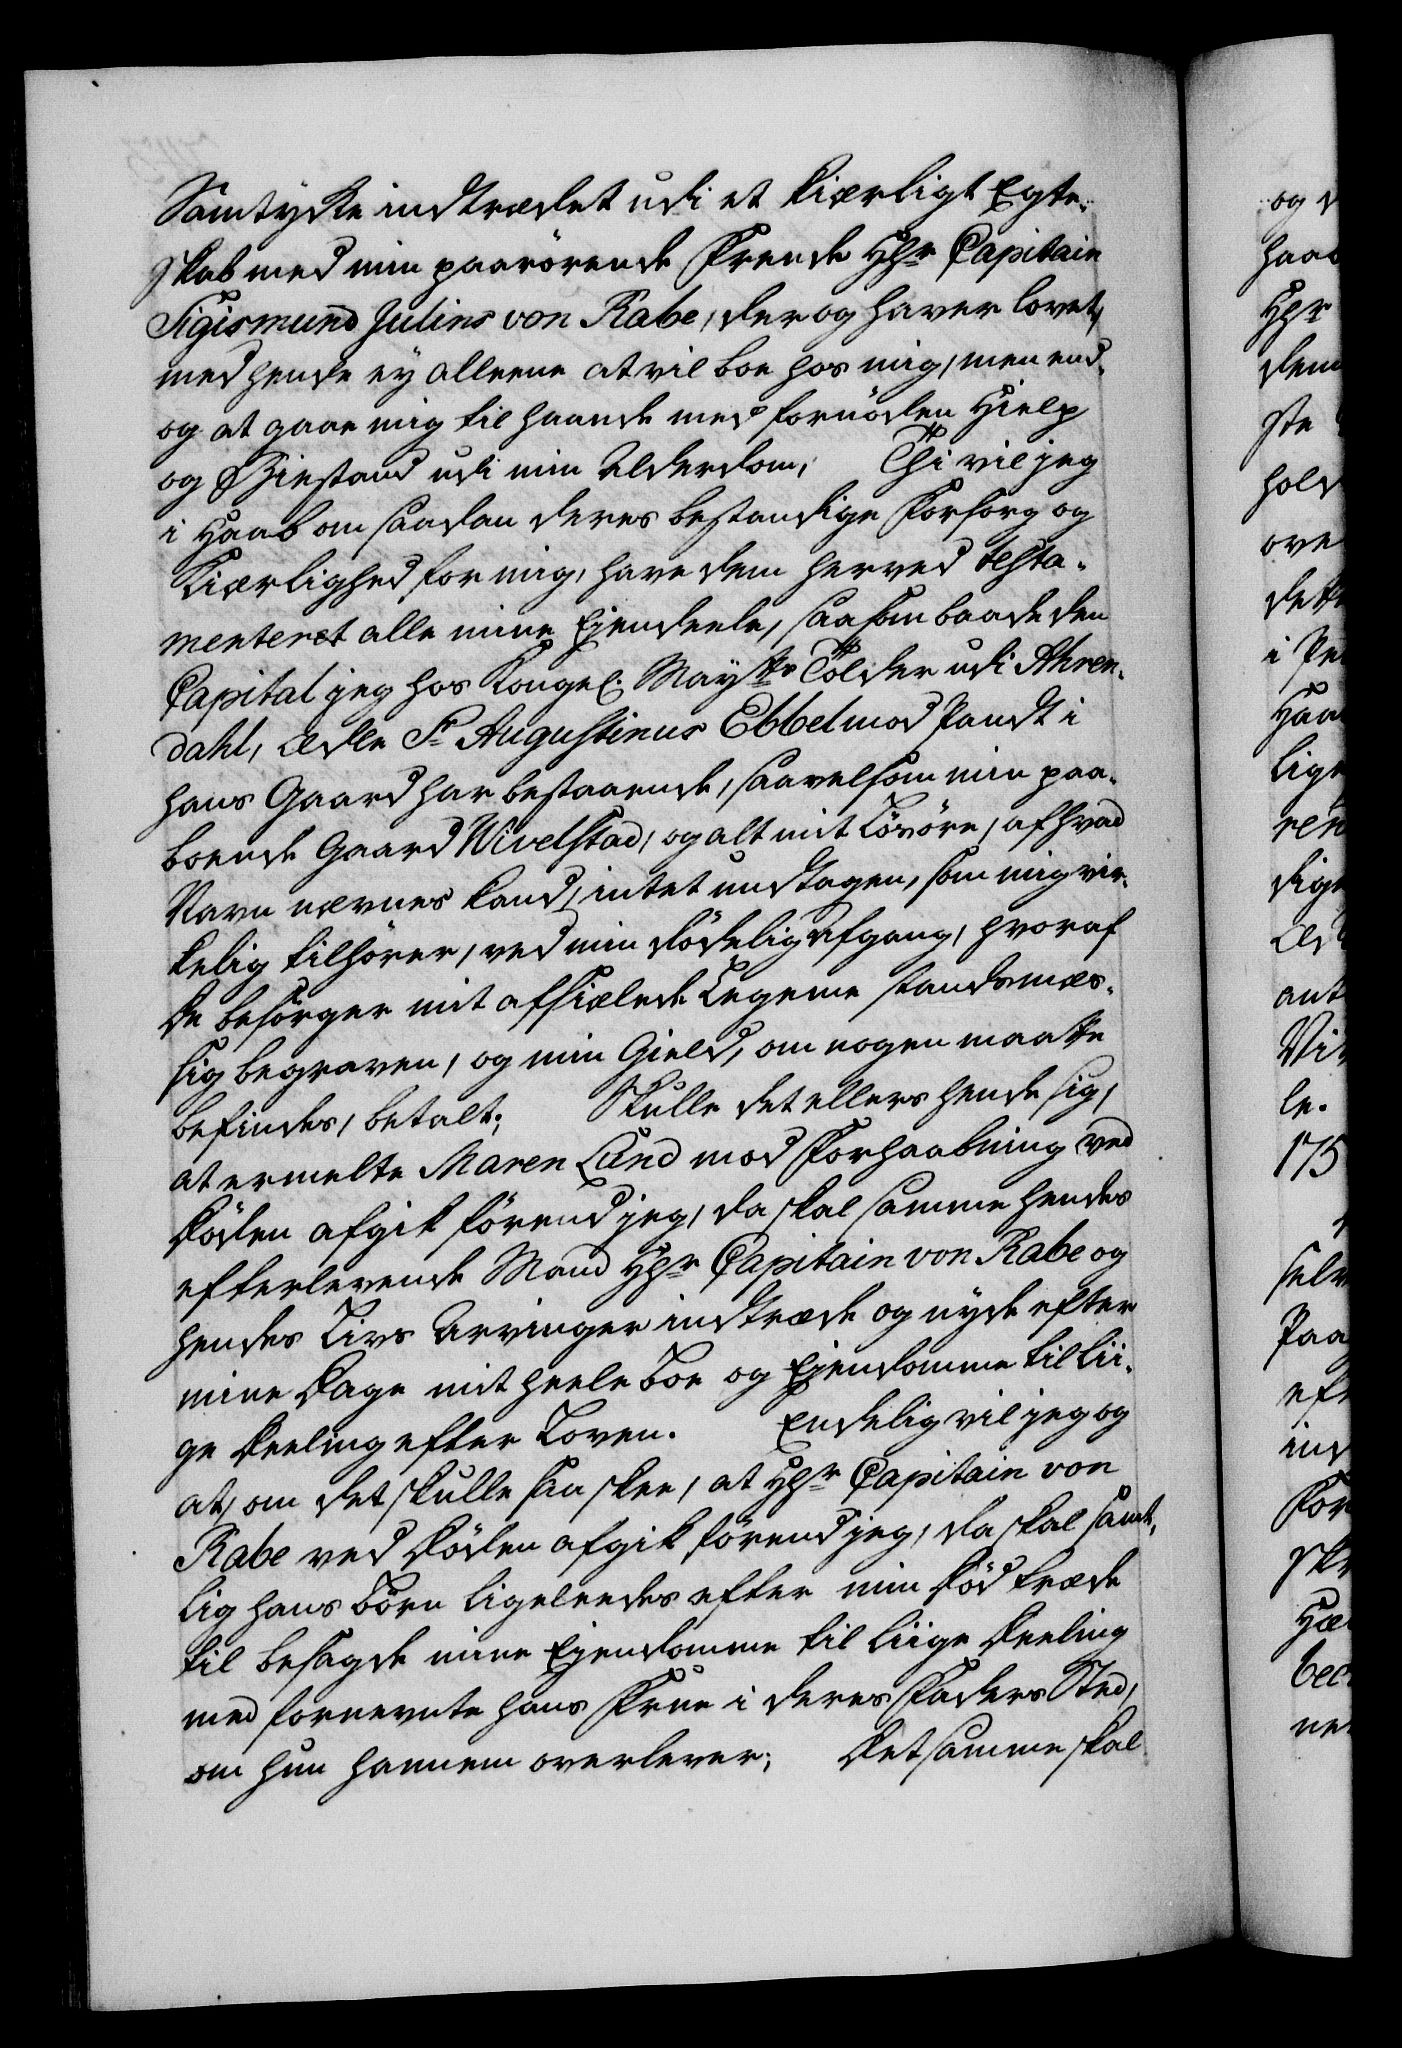 Samtykke indtrædet udi et kierligt Egte-
skab med min paarörende Frende Hr. Capitain
Sigismund Julius von Rabe, der og haver lovet,
med hende ey alleene at vil boe hos mig, men end-
og at gaae mig til haande med fornöden Hielp
og Biestand udi min Alderdom; Thi vil jeg
i Haab om saadan deres bestandige Forsorg og
Kierlighed for mig, have dem herved testa-
menteret alle mine Ejendeele, saasom baade den
Capital jeg hos Kongel. Mayts Tolder udi Ahren-
dahl, ædle Sr. Augustinus Ebbel mod Pandt i
hans Gaard har bestaaende, saavelsom min paa-
boende Gaard Wivelstad, og alt mit Lösöre, af hvad
Navn nævnes kand, intet undtagen, som mig vir-
kelig tilhörer, ved min dödelig Afgang, hvoraf
de besörger mit afsiælede Legeme standsmæs-
sig begraven, og min Gield, om nogen maatte
befindes, betalt; Skulle det ellers hende sig,
at ermelte Maren Lund mod Forhaabning ved
Döden afgik förend jeg, da skal samme hendes
efterlevende Mand Hr. Capitain von Rabe og
hendes Livs Arvinger indtræde og nyde efter
mine Dage mit heele Boe og Ejendomme til lii-
ge Deeling efter Loven. Endelig vil jeg og
at, om det skulle saa skee, at Hr. Capitain von
Rabe ved Döden afgik förend jeg, da skal samt-
lig hans Börn ligeleedes efter min Död træde
til besagde mine Ejendomme til liige Deeling
med fornevnte hans Frue i deres Faders Sted,
om hun hannem overlever; Det samme skal